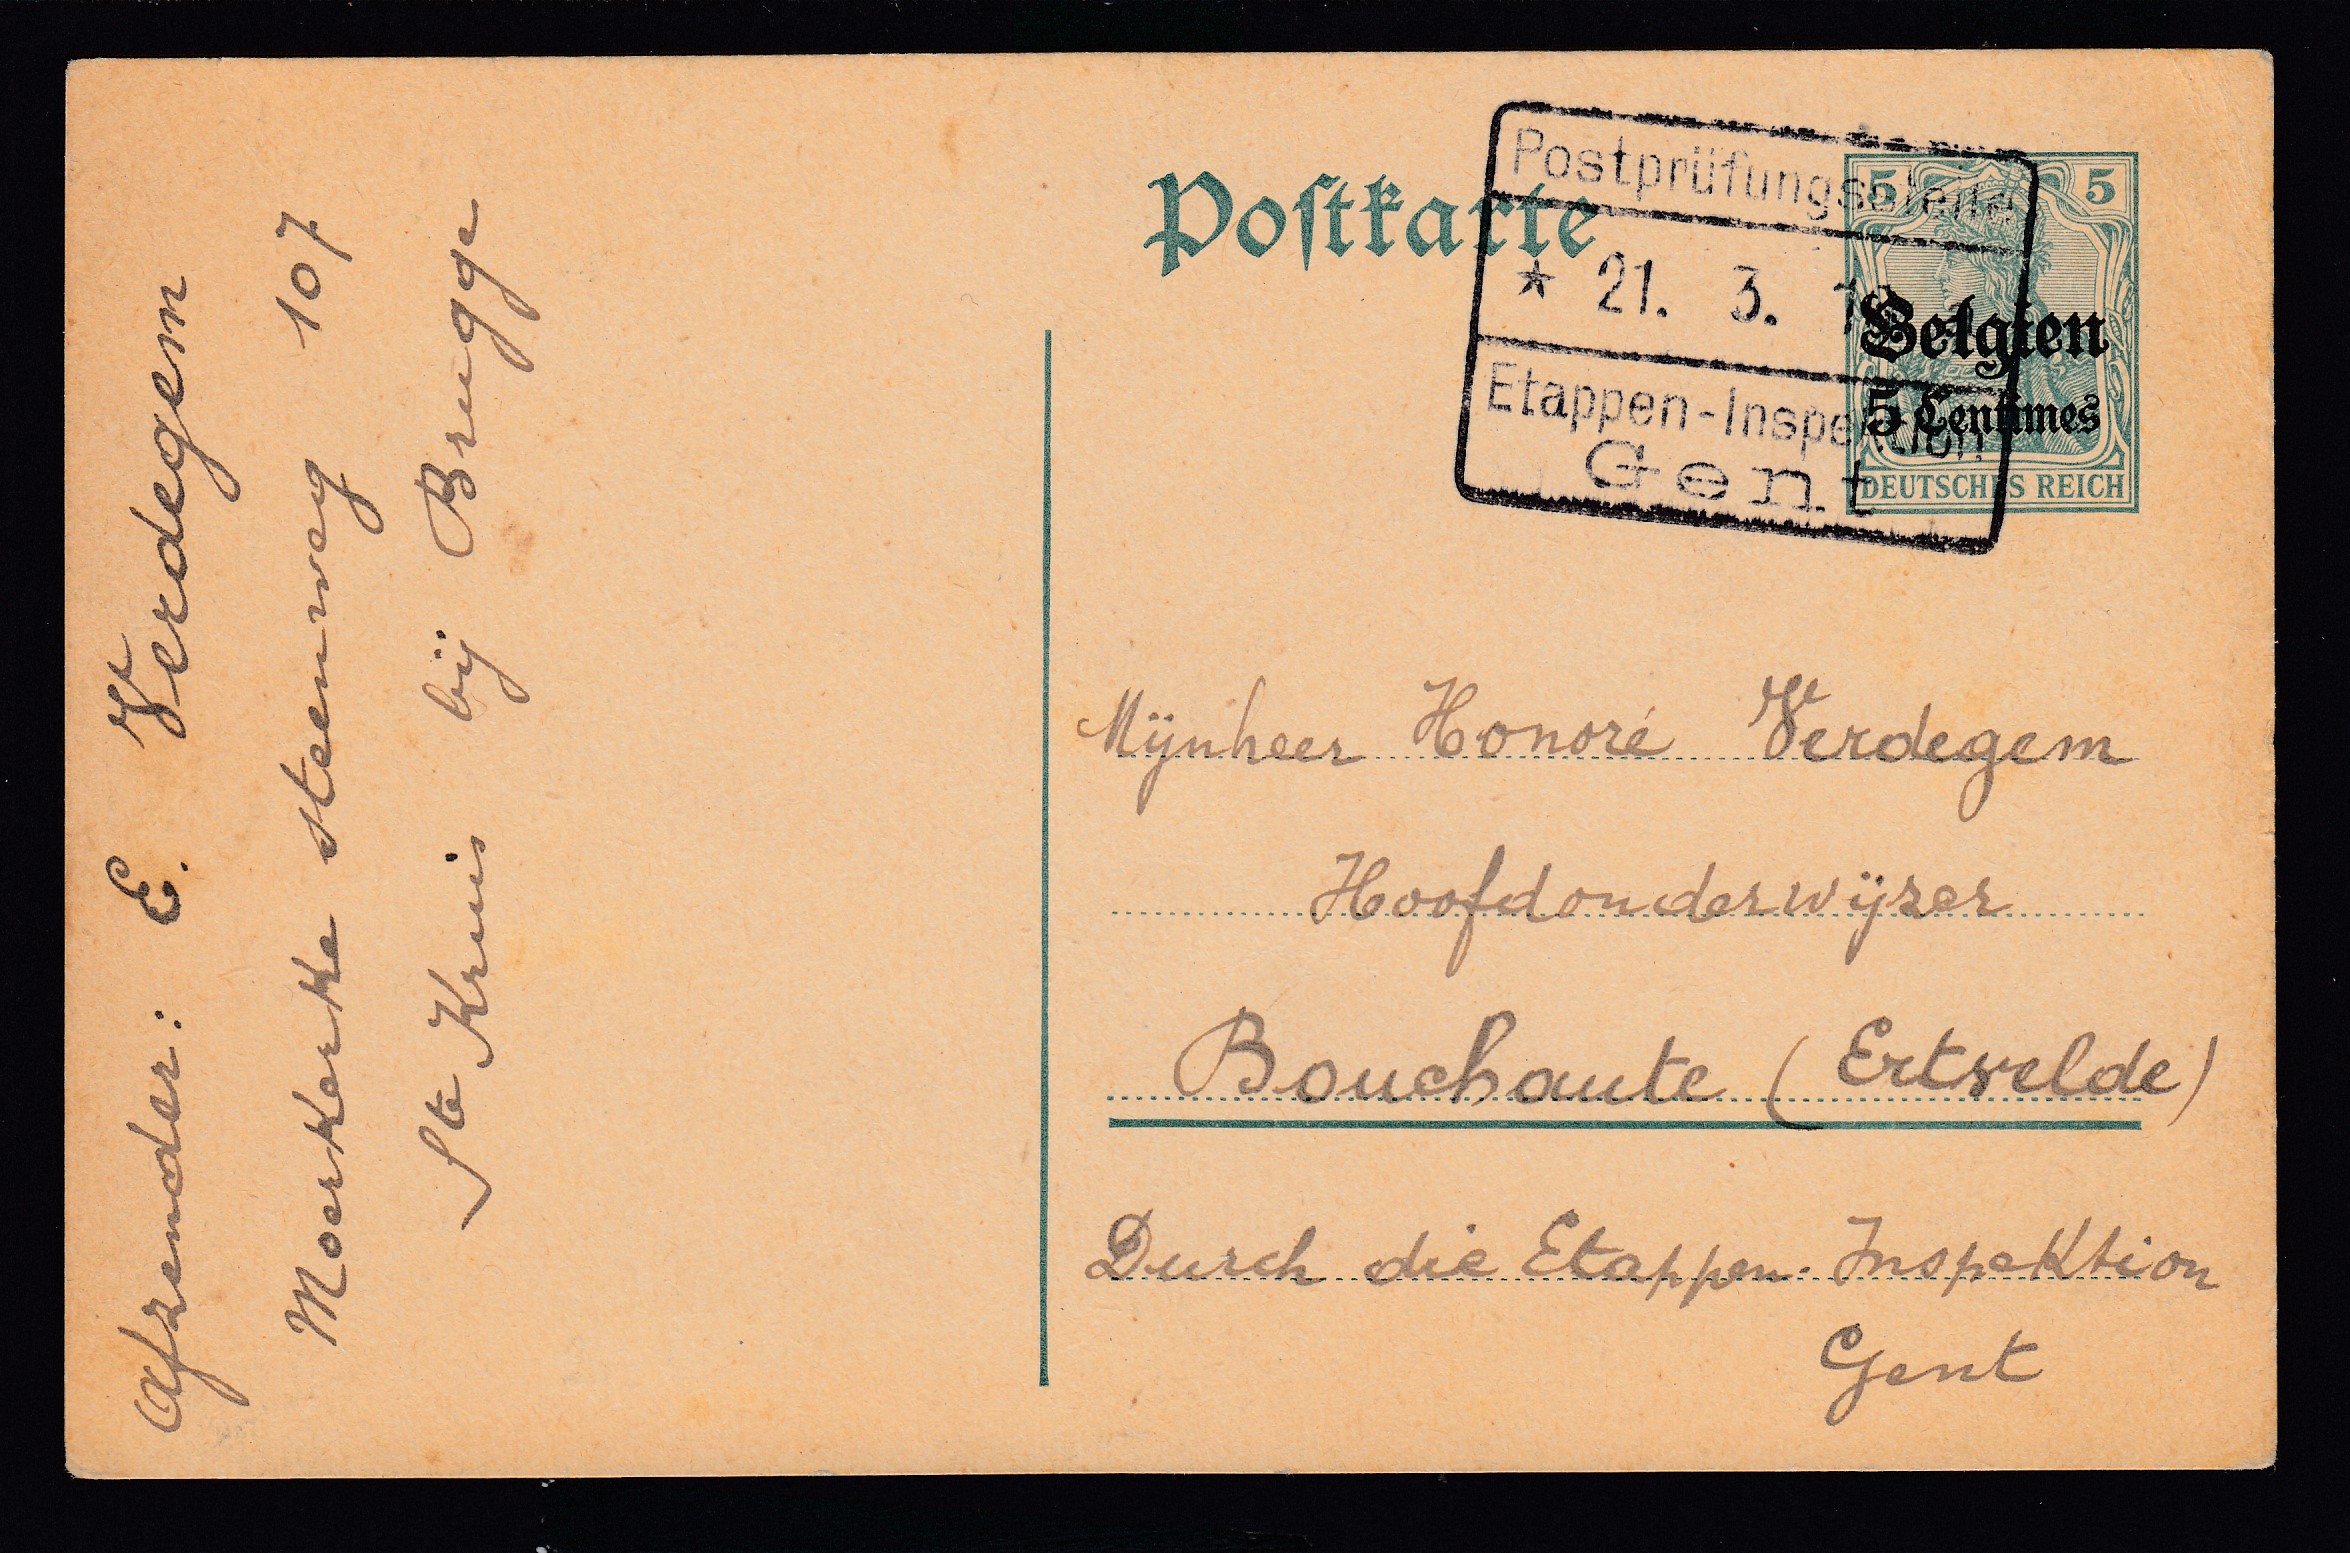 Afzender: E. Verdegem
Moerkerke steenweg 107
Ste Kruis bij Brugge
Postkarte
Postprüfungsstelle
* 21. 3.
Etappen-Inspektion
Gent
5 5
Belgien
5 Centimes
DEUTSCHES REICH
Mijnheer Honoré Verdegem
Hoofdonderwijzer
Bouchaute (Ertvelde)
Durch die Etappen-Inspektion
Gent